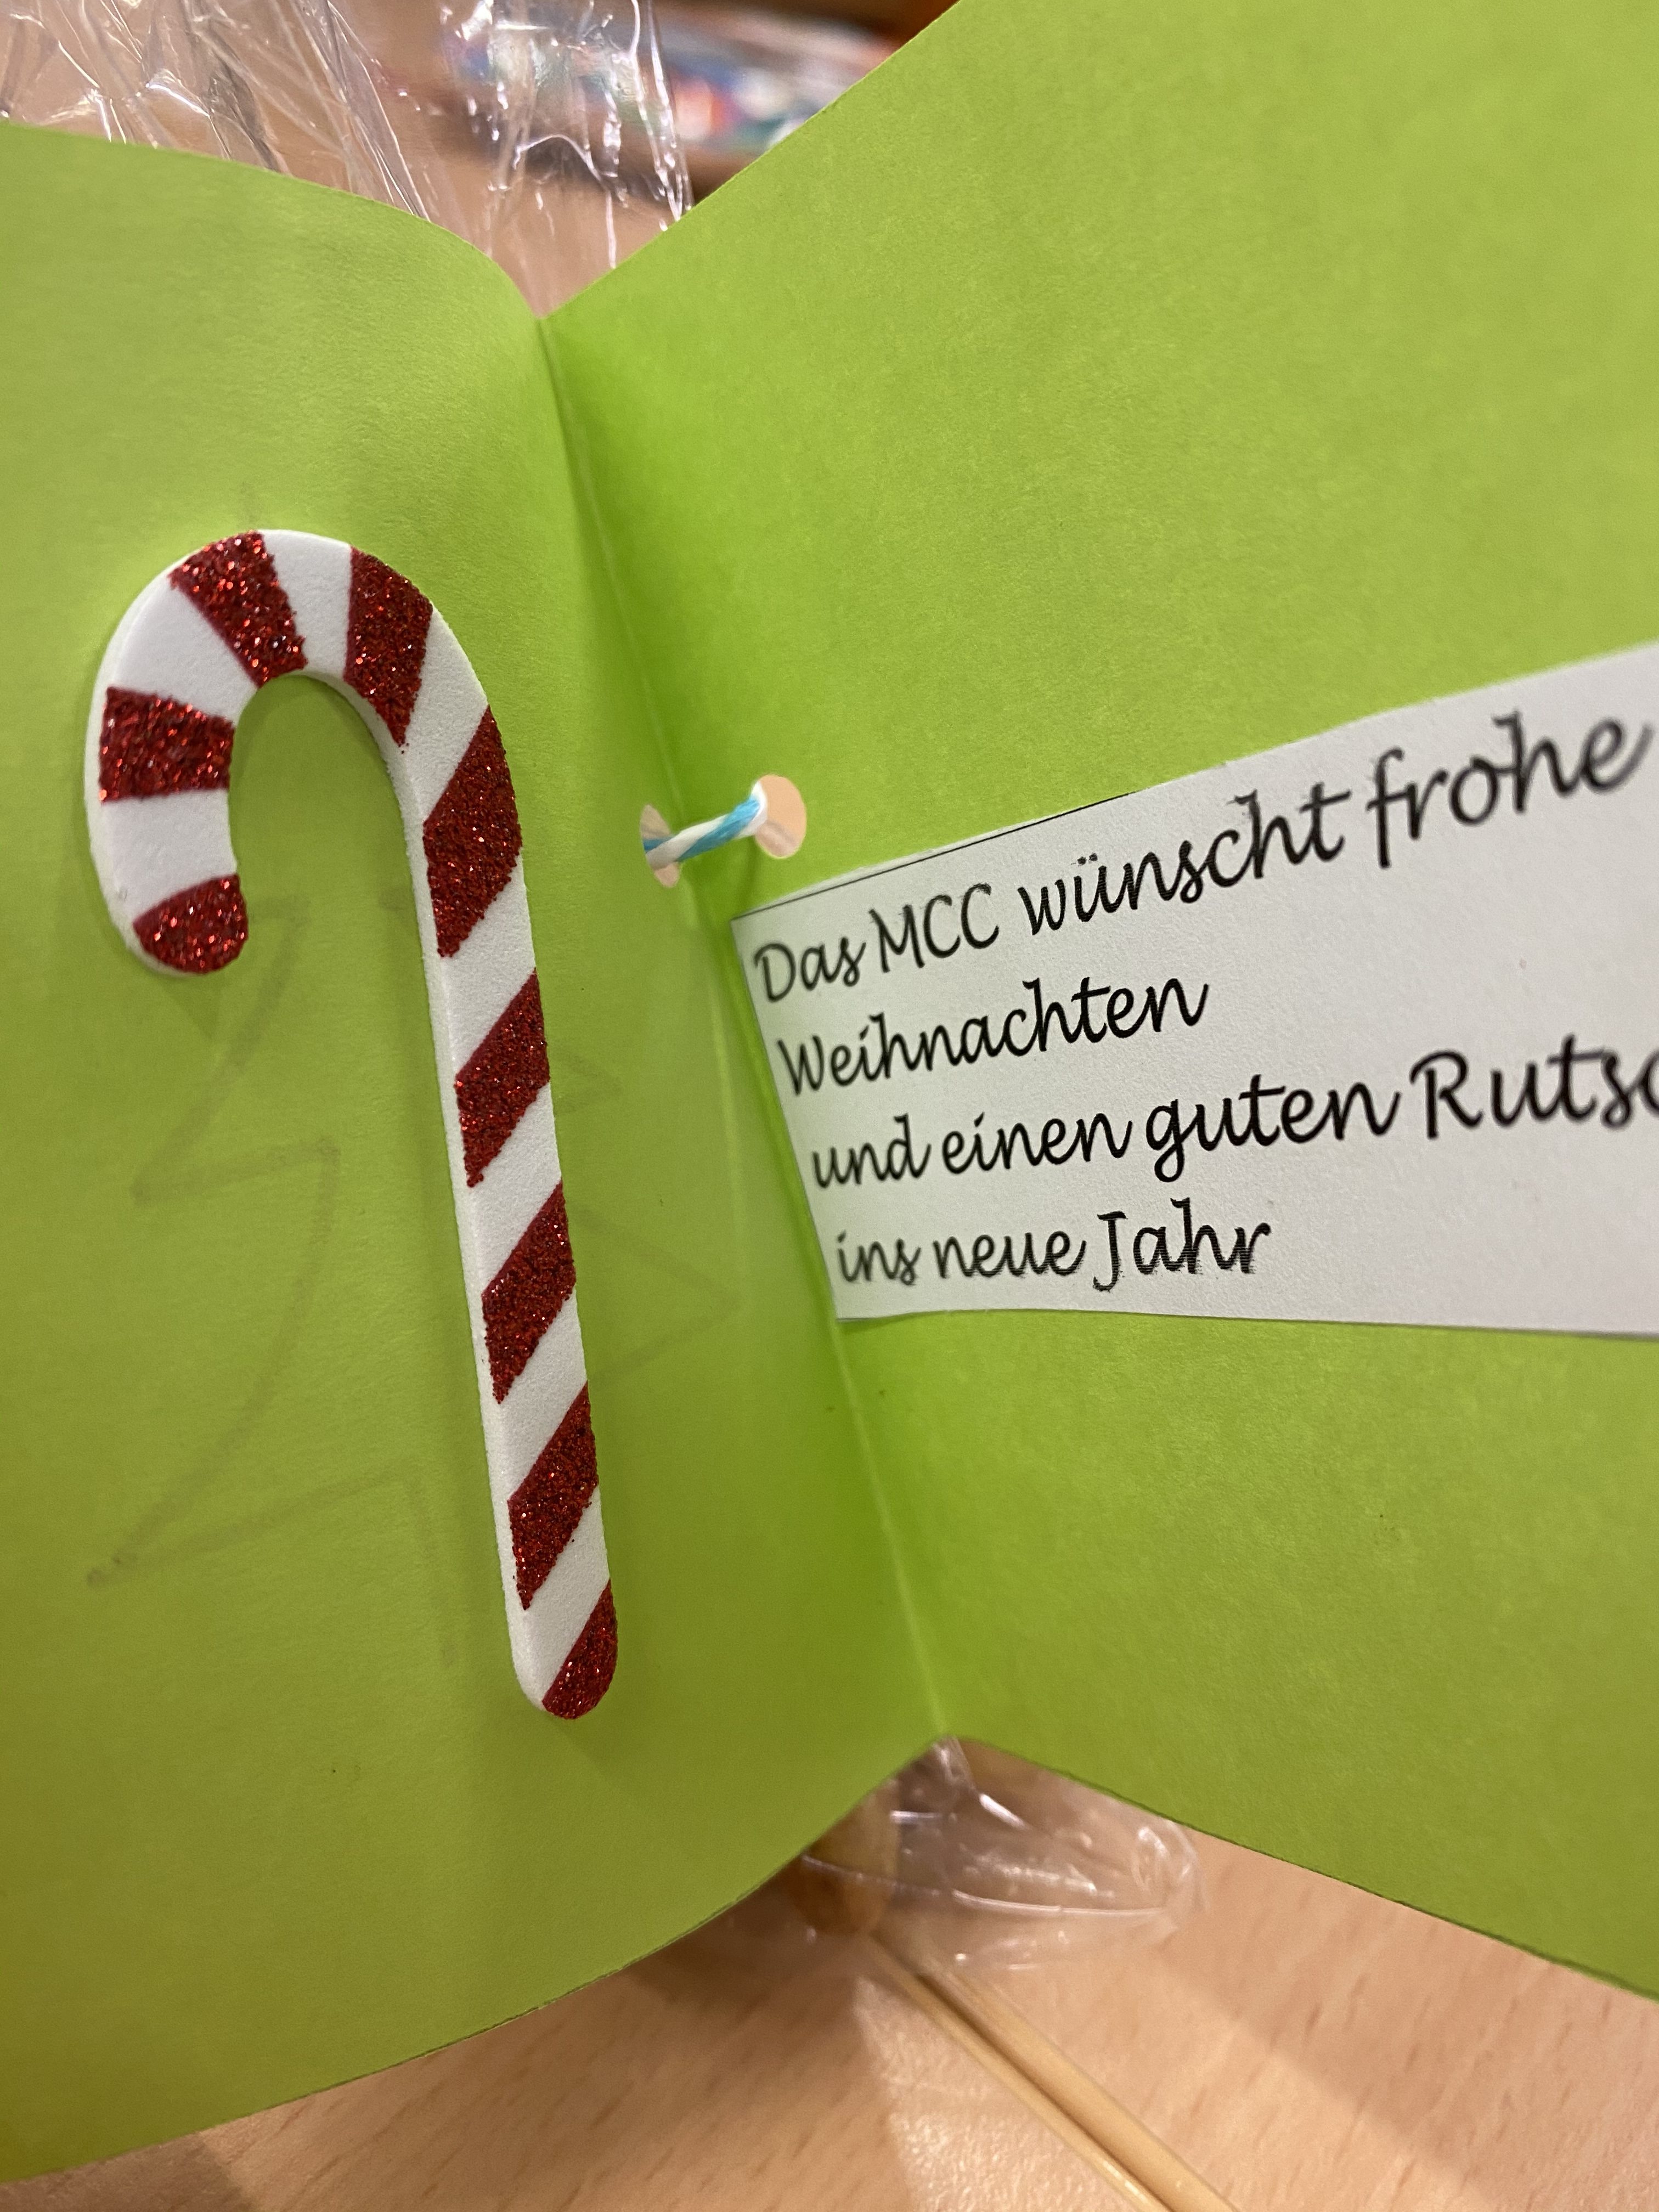 Das MCC wünscht frohe
Weihnachten
und einen guten Rutsc
ins neue Jahr